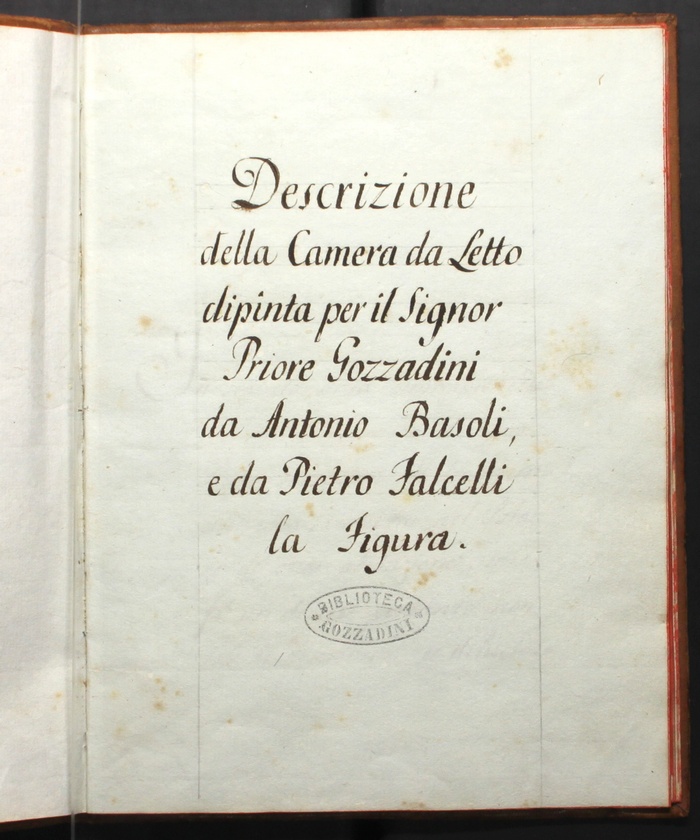 Descrizione
della Camera da Letto
dipinta per il Signor
Priore Gozzadini
da Antonio Basoli,
e da Pietro Falcelli
la Figura.
BIBLIOTECA
GOZZADINI